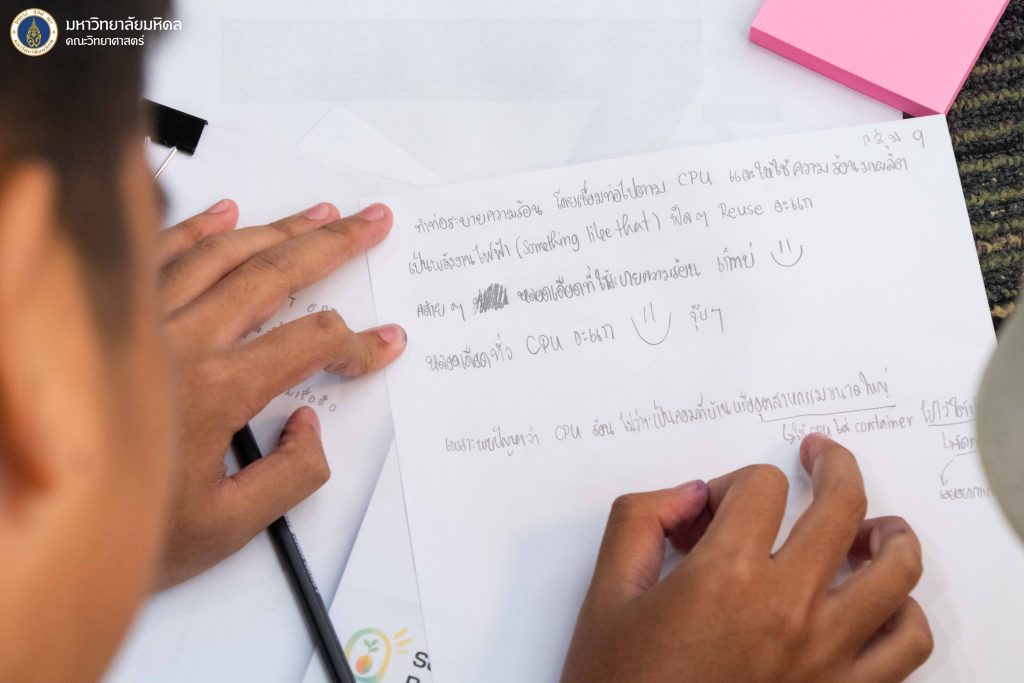 มหาวิทยาลัยมหิดล
คณะวิทยาศาสตร์
กลุ่ม 9
ทำท่อระบายความร้อน โดยเชื่อมท่อไปตาม CPU และให้ใช้ความร้อนมาผลิต
เป็นพลังงานไฟฟ้า (something like that) ฟีลๆ Reuse อะแก
คล้ายๆ หลอดเลือดที่ใช้ระบายความร้อน
หลอดเลือดทั่ว CPU อะแก จุ๊บๆ
เพราะพบปัญหาว่า CPU ร้อน ไม่ว่าจะเป็นคอมที่บ้านหรืออุตสาหกรรมขนาดใหญ่
ใช้ CPU ใส่ container